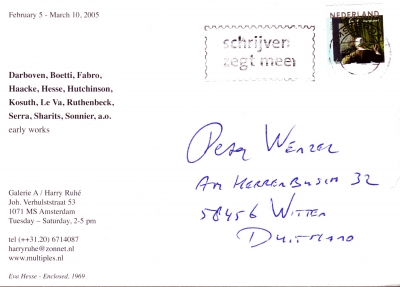 February 5 - March 10, 2005
schrijven
zegt meer
NEDERLAND
Darboven, Boetti, Fabro,
Haacke, Hesse, Hutchinson,
Kosuth, Le Va, Ruthenbeck,
Serra, Sharits, Sonnier, a.o.
early works
Peter Wenzel
Am Herrenbusch 32
58456 Witten
Duitsland
Galerie A / Harry Ruhé
Joh. Verhulststraat 53
1071 MS Amsterdam
Tuesday – Saturday, 2-5 pm
tel (++31.20) 6714087
harryruhe@zonnet.nl
www.multiples.nl
Eva Hesse - Enclosed, 1969